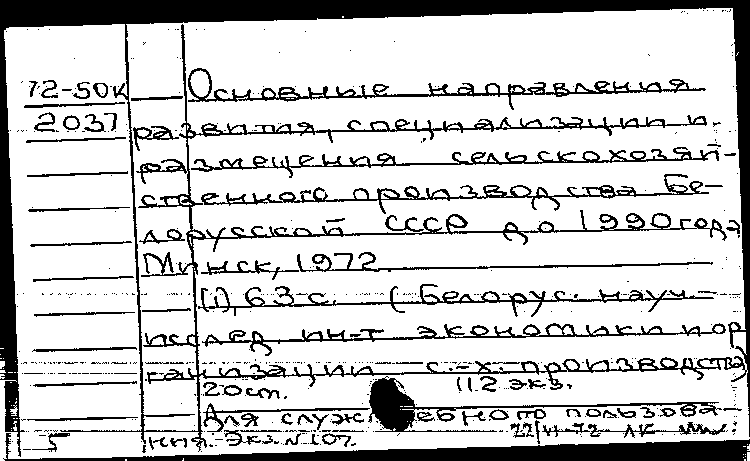 72-50к Основные направления
2037 развития, специализации и
размещения сельскохозяй-
ственного производства Бе-
лорусской СССР до 1990 года
Минск, 1972.
[1], 63 с. (Белорус. науч.-
исслед. ин-т экономики и ор
ганизации с.-х. производства)
20 см. 112 экз.
Для служебного пользова-
5 ния. Экз. N 107. 22/VI-72 ЛК